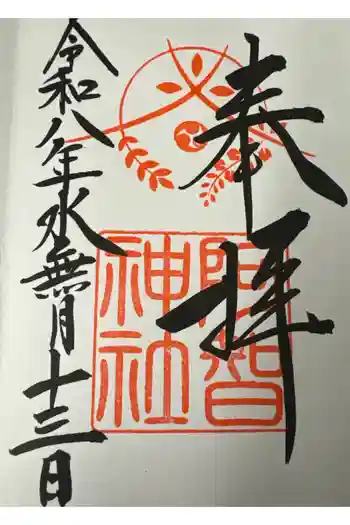 奉拝
阿智
神社
令和八年水無月十三日